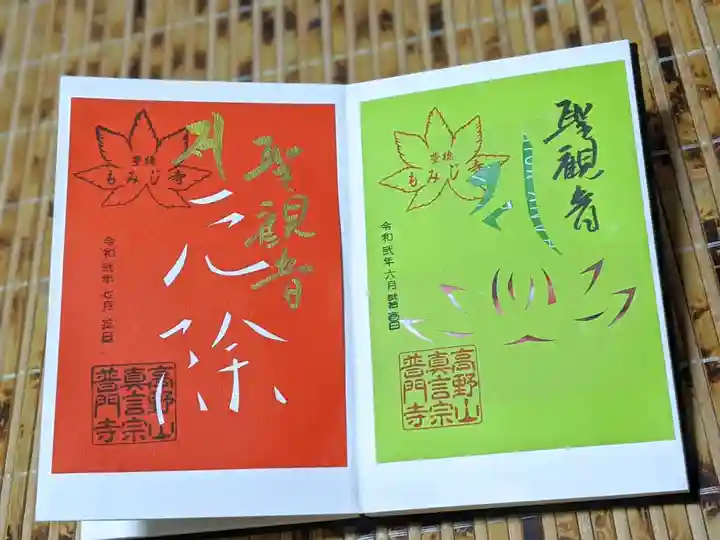 豊橋
もみじ寺
聖観音
厄除
令和弐年七月壱日
高野山
真言宗
普門寺
豊橋
もみじ寺
聖観音
令和弐年六月弐拾壱日
高野山
真言宗
普門寺